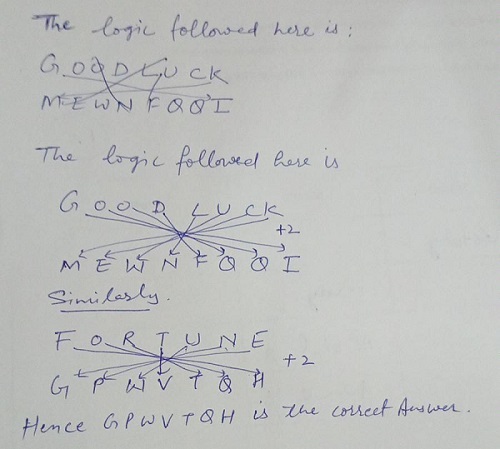 The logic followed here is:
G O O D L U C K
M E W N F Q Q I
The logic followed here is
G O O D L U C K
+2
M E W N F Q Q I
Similarly.
F O R T U N E
+2
G P W V T Q H
Hence G P W V T Q H is the correct Answer.